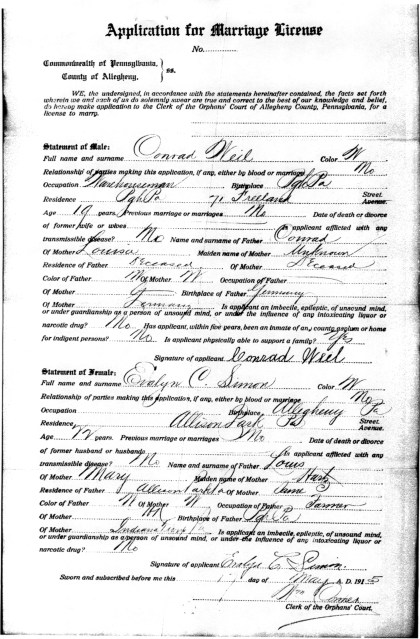 Application for Marriage License
No.
Commonwealth of Pennsylvania,
County of Allegheny, } ss.
WE, the undersigned, in accordance with the statements hereinafter contained, the facts set forth
wherein we and each of us do solemnly swear are true and correct to the best of our knowledge and belief,
do hereby make application to the Clerk of the Orphans' Court of Allegheny County, Pennsylvania, for a
license to marry.
Statement of Male:
Full name and surname Conrad Weil Color W
Relationship of parties making this application, if any, either by blood or marriage No
Occupation Warehouseman Birthplace Pgh Pa
Residence Pgh Pa 71 Freeland Street. Avenue.
Age 19 years. Previous marriage or marriages No Date of death or divorce
of former wife or wives Is applicant afflicted with any
transmissible disease? No Name and surname of Father Conrad
Of Mother Louisa Maiden name of Mother Unknown
Residence of Father Deceased Of Mother Deceased
Color of Father W Of Mother W Occupation of Father
Of Mother Birthplace of Father Germany
Of Mother Germany Is applicant an imbecile, epileptic, of unsound mind,
or under guardianship as a person of unsound mind, or under the influence of any intoxicating liquor or
narcotic drug? No Has applicant, within five years, been an inmate of any county asylum or home
for indigent persons? No Is applicant physically able to support a family? Yes
Signature of applicant Conrad Weil
Statement of Female:
Full name and surname Evalyn C. Simon Color W
Relationship of parties making this application, if any, either by blood or marriage No
Occupation Birthplace Allegheny Pa
Residence Allison Park Pa Street. Avenue.
Age years. Previous marriage or marriages No Date of death or divorce
of former husband or husbands Is applicant afflicted with any
transmissible disease? No Name and surname of Father Louis
Of Mother Mary Maiden name of Mother
Residence of Father Allison Park Pa Of Mother Same
Color of Father W Of Mother W Occupation of Father Farmer
Of Mother Birthplace of Father Pgh Pa
Of Mother Indiana Is applicant an imbecile, epileptic, of unsound mind,
or under guardianship as a person of unsound mind, or under the influence of any intoxicating liquor or
narcotic drug? No
Signature of applicant Evalyn C. Simon
Sworn and subscribed before me this day of May A. D. 191
Clerk of the Orphans' Court.